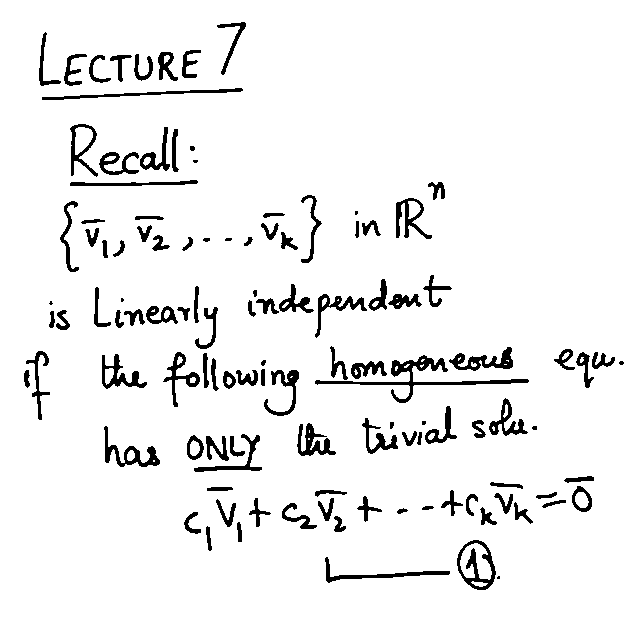 LECTURE 7
Recall:
{v̅₁, v̅₂, ..., v̅ₖ} in ℝⁿ
is Linearly independent
if the following homogeneous equ.
has ONLY the trivial solu.
c₁v̅₁ + c₂v̅₂ + --- + cₖv̅ₖ = 0̅
①.